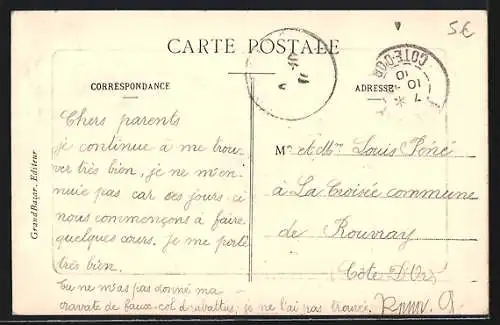 5€
CARTE POSTALE
CORRESPONDANCE
ADRESSE
COTE-D'OR
7 *
10
10
Chers parents
je continue à me trou-
ver très bien, je ne m'en
nuie pas car ces jours ci
nous commençons à faire
quelques cours. je me porte
très bien.
tu ne m'as pas donné ma
cravate de faux-col d rabattus; je ne l'ai pas trouvé.
Mr et Mme Louis
à La Croisée commune
de Rouvray
(Côte D'Or)
Grand Bazar, Editeur